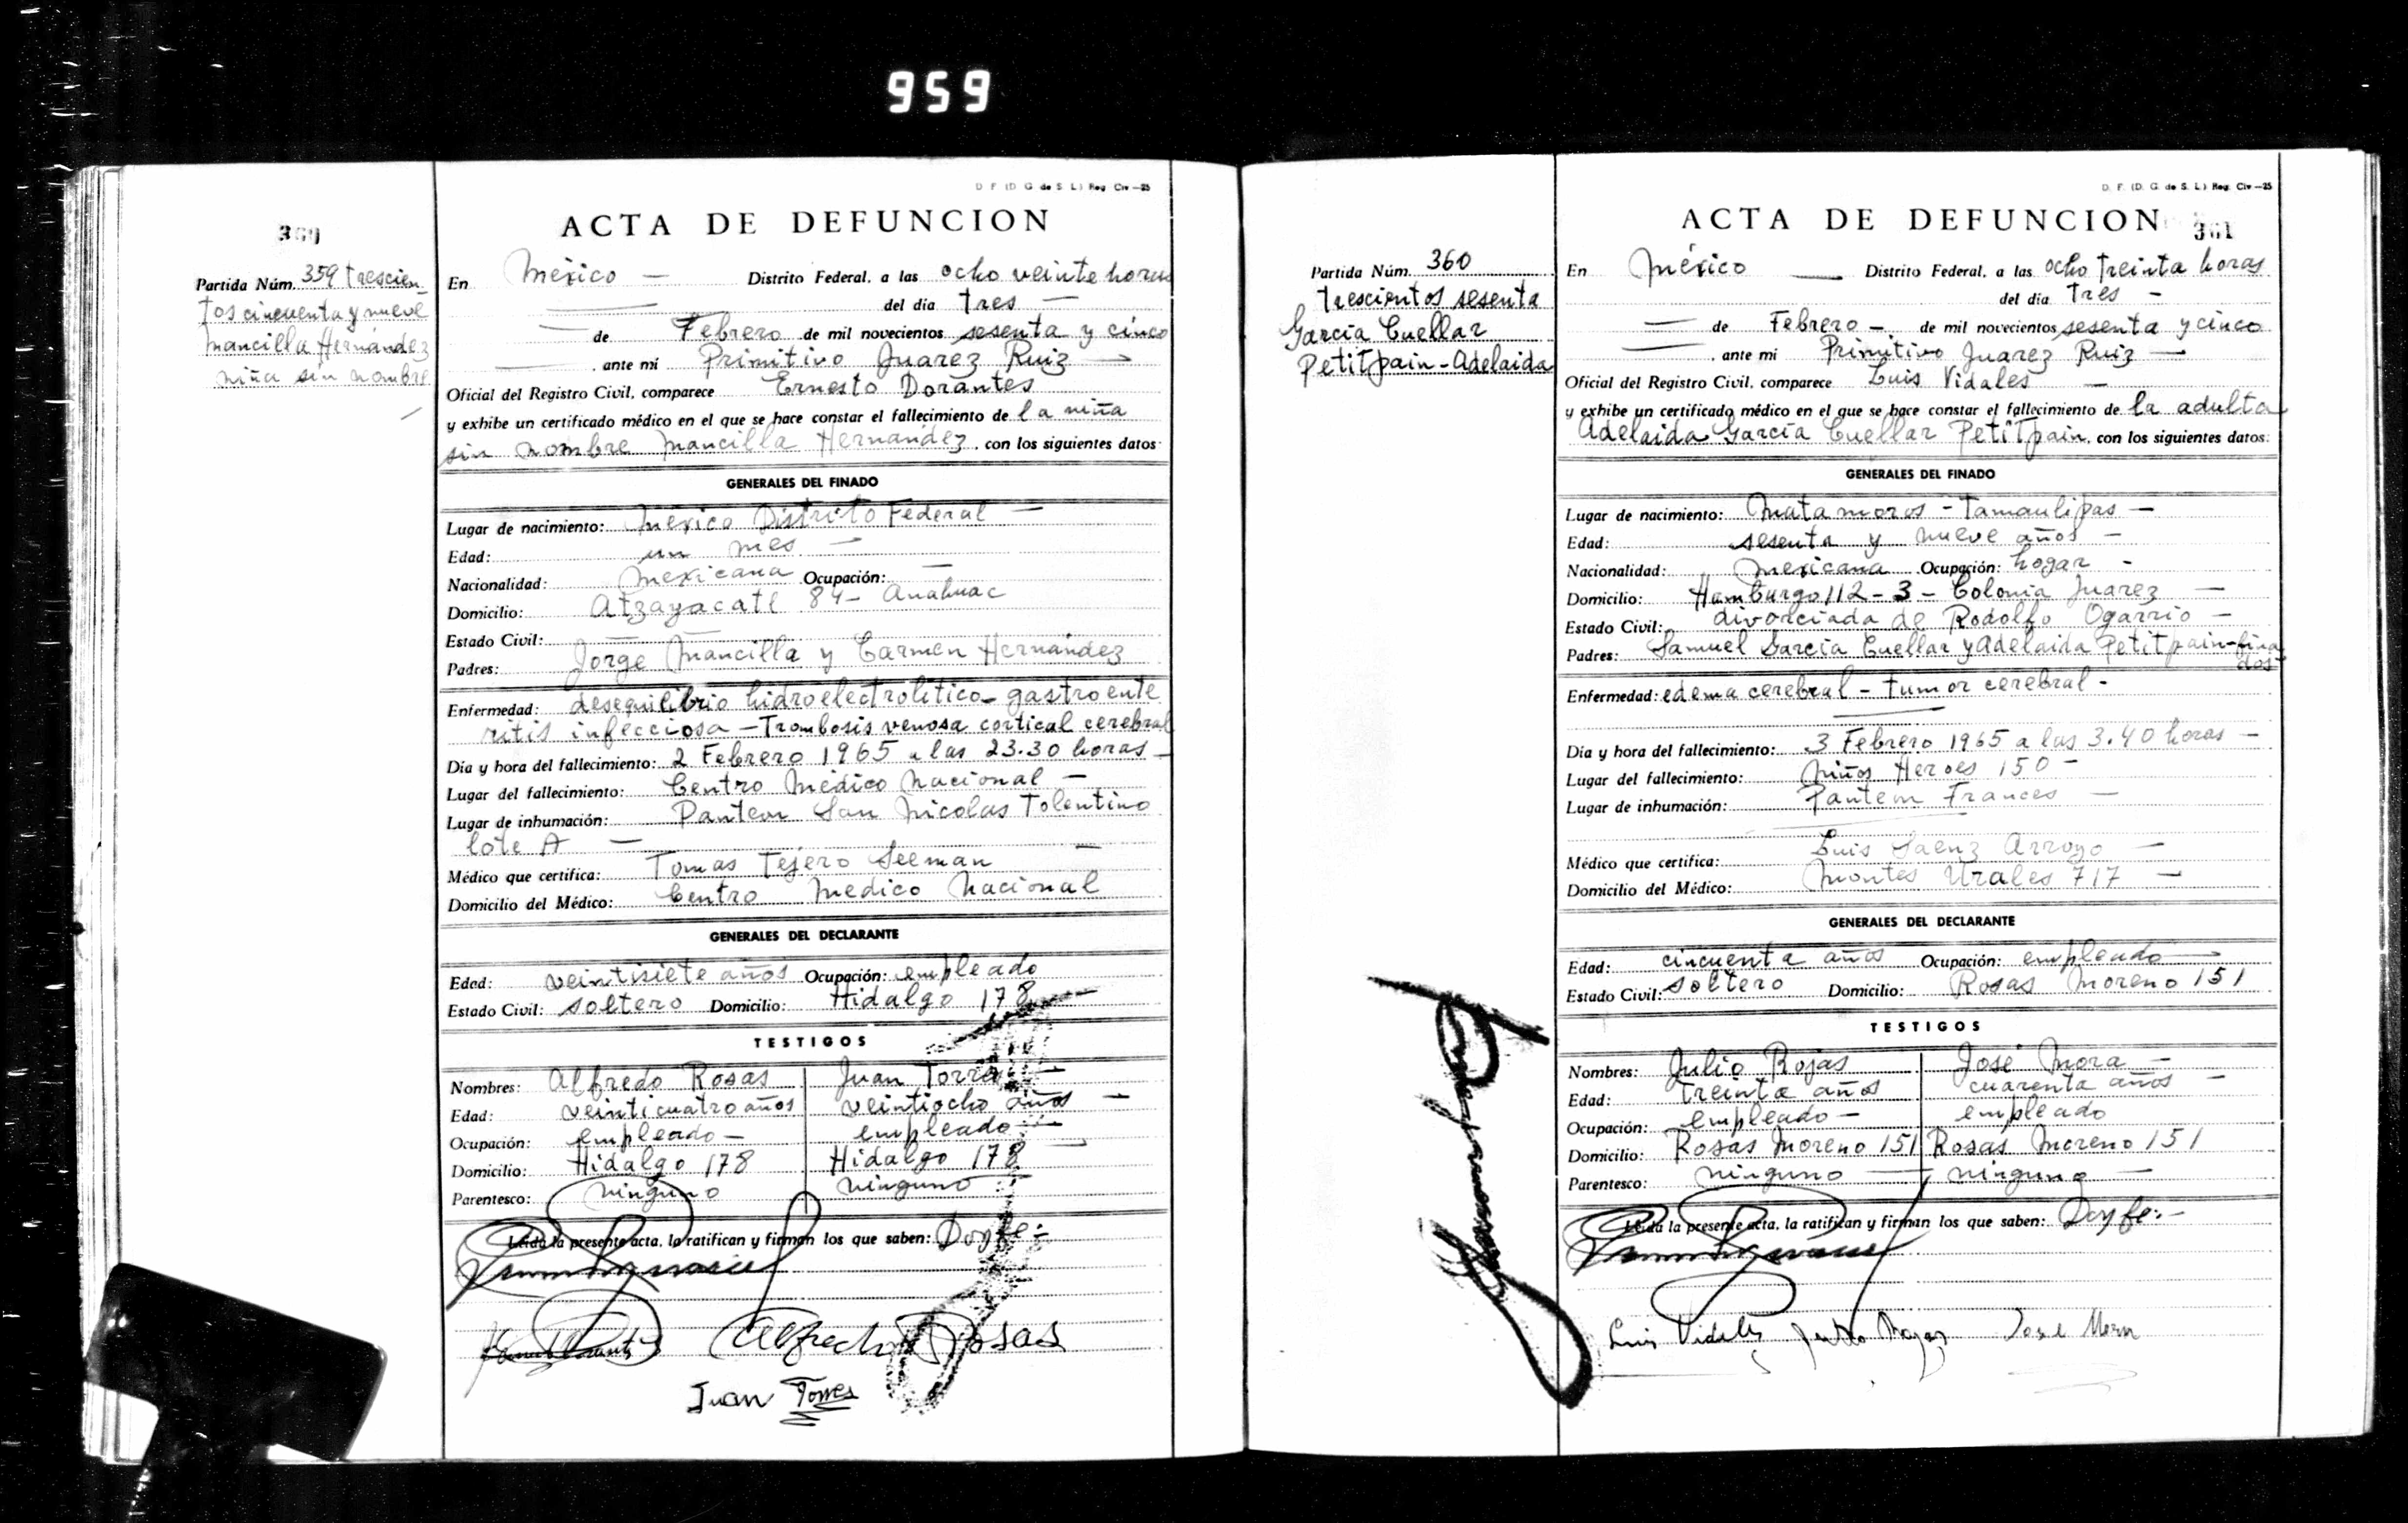 959
D. F. (D. G. de S. L.) Reg. Civ.—25
ACTA DE DEFUNCION
Partida Núm. 359 trescien
tos cincuenta y nueve
Mancilla Hernandez
niña sin nombre
En México — Distrito Federal, a las ocho veinte horas
del día tres —
de Febrero de mil novecientos sesenta y cinco
, ante mí Primitivo Juarez Ruiz —
Oficial del Registro Civil, comparece Ernesto Dorantes
y exhibe un certificado médico en el que se hace constar el fallecimiento de la niña
sin nombre Mancilla Hernandez, con los siguientes datos:
GENERALES DEL FINADO
Lugar de nacimiento: México Distrito Federal —
Edad: un mes —
Nacionalidad: Mexicana Ocupación: —
Domicilio: Atzayacatl 84 - Anahuac
Estado Civil: —
Padres: Jorge Mancilla y Carmen Hernández
Enfermedad: desequilibrio hidroelectrolitico - gastroente
ritis infecciosa - Trombosis venosa cortical cerebral
Día y hora del fallecimiento: 2 Febrero 1965 a las 23.30 horas —
Lugar del fallecimiento: Centro Médico Nacional —
Lugar de inhumación: Panteon San Nicolas Tolentino
lote A —
Médico que certifica: Tomas Tejero Seeman —
Domicilio del Médico: Centro Medico Nacional
GENERALES DEL DECLARANTE
Edad: veintisiete años Ocupación: empleado
Estado Civil: soltero Domicilio: Hidalgo 178 —
TESTIGOS
Nombres: Alfredo Rosas Juan Torres —
Edad: veinticuatro años veintiocho años —
Ocupación: empleado — empleado —
Domicilio: Hidalgo 178 Hidalgo 178 —
Parentesco: ninguno ninguno —
Leída la presente acta, la ratifican y firman los que saben: Doy fe:-
Alfredo Rosas
Juan Torres
D. F. (D. G. de S. L.) Reg. Civ.—25
ACTA DE DEFUNCION 361
Partida Núm. 360
Trescientos sesenta
García Cuellar
Petitpain - Adelaida
En México — Distrito Federal, a las ocho treinta horas
del día tres —
de Febrero — de mil novecientos sesenta y cinco
, ante mí Primitivo Juarez Ruiz —
Oficial del Registro Civil, comparece Luis Vidales —
y exhibe un certificado médico en el que se hace constar el fallecimiento de la adulta
Adelaida García Cuellar Petitpain, con los siguientes datos:
GENERALES DEL FINADO
Lugar de nacimiento: Matamoros - Tamaulipas —
Edad: sesenta y nueve años —
Nacionalidad: Mexicana Ocupación: hogar -
Domicilio: Hamburgo 112 - 3 - Colonia Juarez —
Estado Civil: divorciada de Rodolfo Ogarrio —
Padres: Samuel García Cuellar y Adelaida Petitpain - fina
dos-
Enfermedad: edema cerebral - tumor cerebral -
Día y hora del fallecimiento: 3 Febrero 1965 a las 3.40 horas —
Lugar del fallecimiento: Niños Heroes 150 —
Lugar de inhumación: Panteon Frances —
Médico que certifica: Luis Saenz Arroyo —
Domicilio del Médico: Montes Urales 717 —
GENERALES DEL DECLARANTE
Edad: cincuenta años Ocupación: empleado —
Estado Civil: soltero Domicilio: Rosas Moreno 151
TESTIGOS
Nombres: Julio Rojas José Mora —
Edad: treinta años cuarenta años —
Ocupación: empleado — empleado
Domicilio: Rosas Moreno 151 Rosas Moreno 151
Parentesco: ninguno — ninguno —
Leída la presente acta, la ratifican y firman los que saben: Doy fe:-
Luis Vidales Julio Rojas José Mora